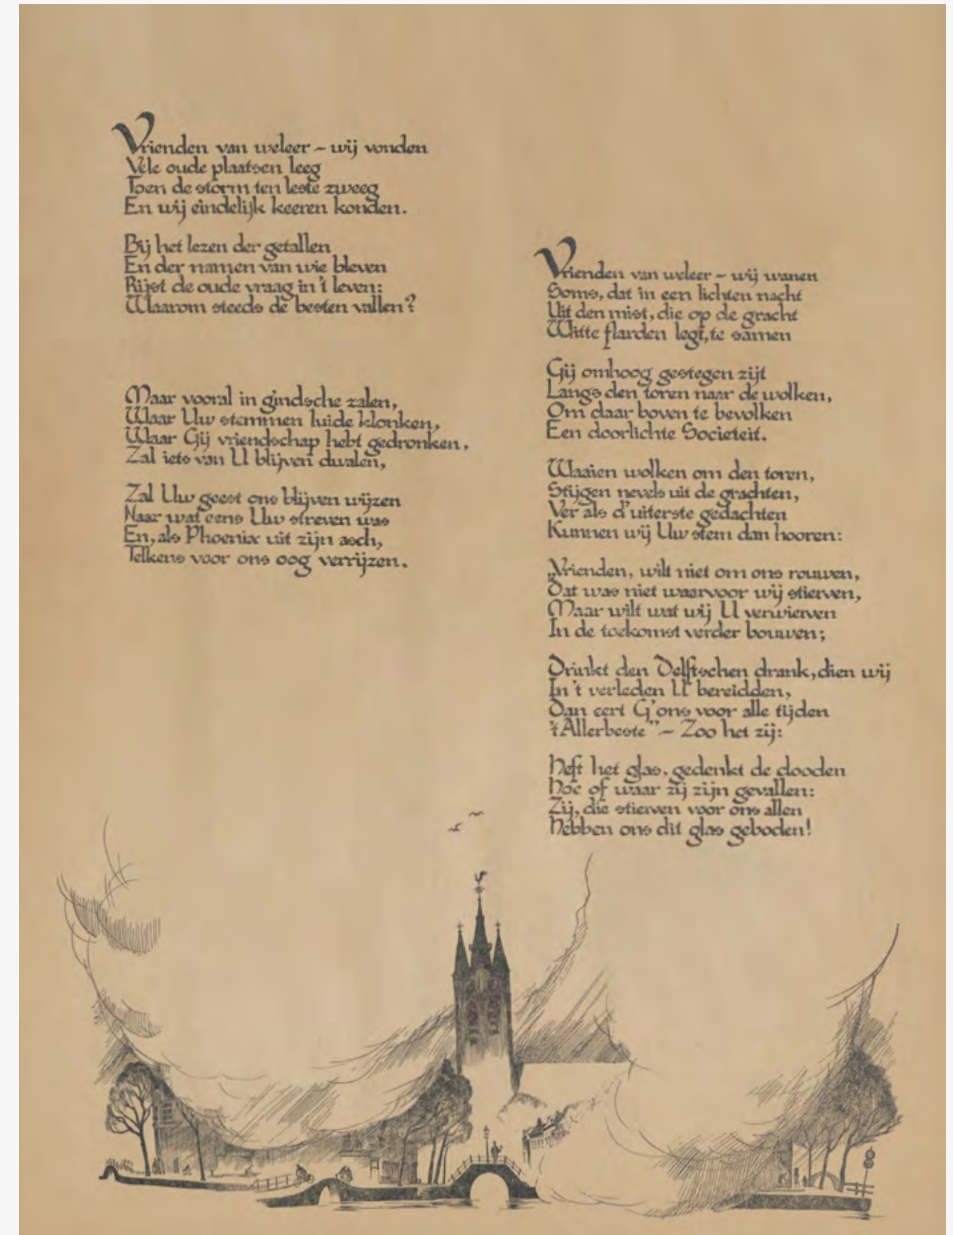 Vrienden van weleer – wij vonden
Vele oude plaatsen leeg
Toen de storm ten leste zweeg
En wij eindelijk keeren konden.
Bij het lezen der getallen
En der namen van wie bleven
Rijst de oude vraag in 't leven:
Waarom steeds de besten vallen?
Maar vooral in gindsche zalen,
Waar Uw stemmen luide klonken,
Waar Gij vriendschap hebt gedronken,
Zal iets van U blijven dwalen,
Zal Uw geest ons blijven wijzen
Naar wat eens Uw streven was
En, als Phoenix uit zijn asch,
Telkens voor ons oog verrijzen.
Vrienden van weleer – wij wanen
Soms, dat in een lichten nacht
Uit den mist, die op de gracht
Witte flarden legt, te samen
Gij omhoog gestegen zijt
Langs den toren naar de wolken,
Om daar boven te bevolken
Een doorlichte Societeit.
Waaien wolken om den toren,
Stijgen nevels uit de grachten,
Ver als d'uiterste gedachten
Kunnen wij Uw stem dan hooren:
„Vrienden, wilt niet om ons rouwen,
Dat was niet waarvoor wij stierven,
Maar wilt wat wij U verwierven
In de toekomst verder bouwen;
Drinkt den Delftschen drank, dien wij
In 't verleden U bereidden,
Dan eert G'ons voor alle tijden
't Allerbeste" – Zoo het zij:
Heft het glas, gedenkt de dooden
Hoe of waar zij zijn gevallen:
Zij, die stierven voor ons allen
Hebben ons dit glas geboden!